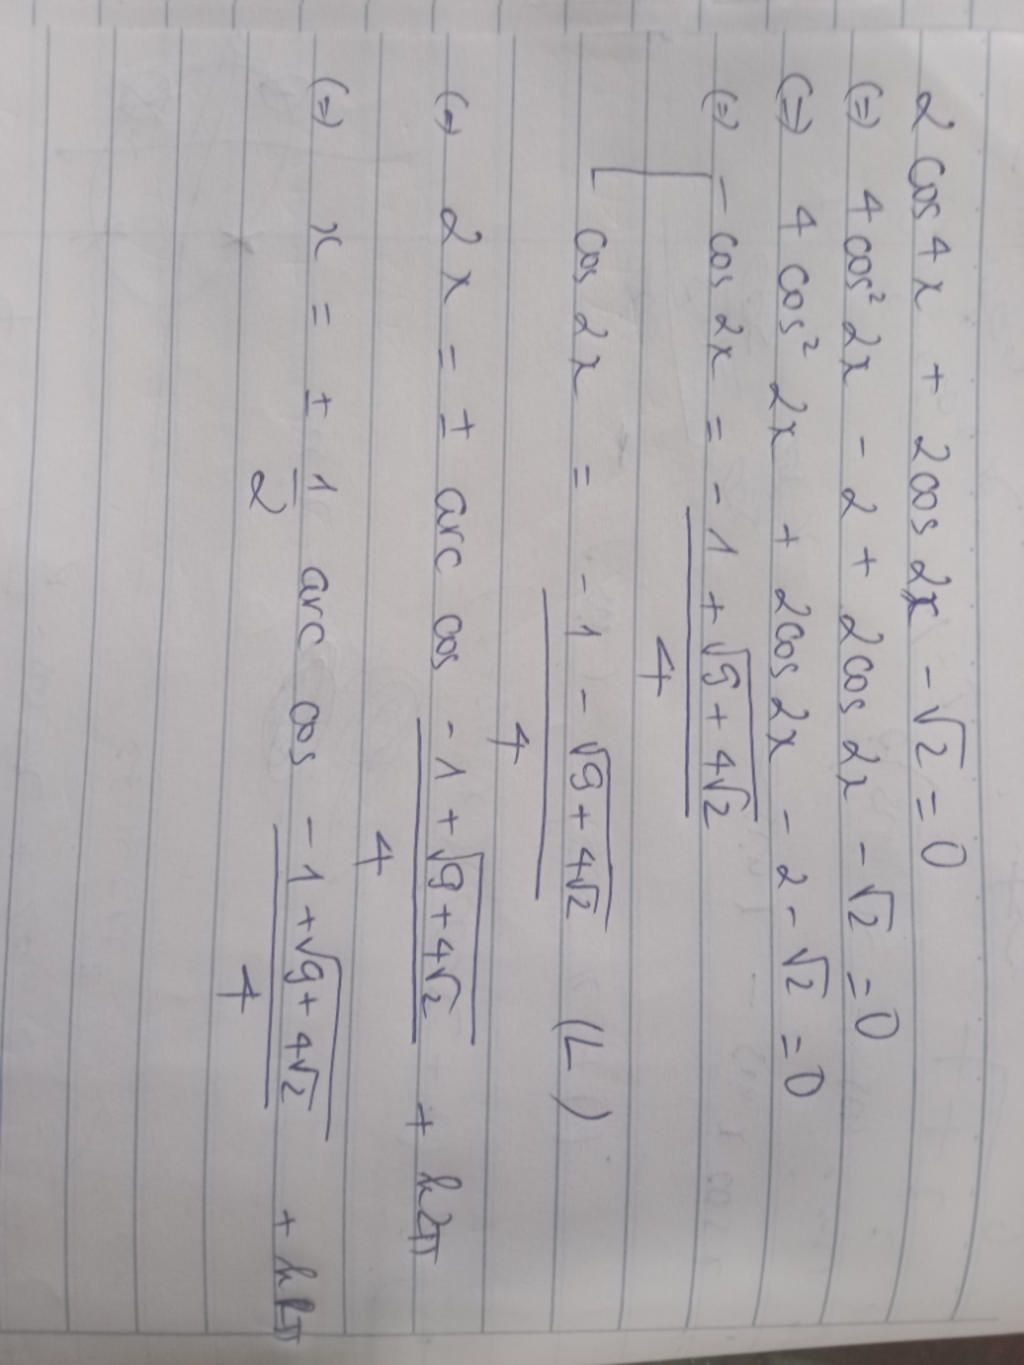 2cos4x + 2cos2x - √2 = 0
(=) 4cos² 2x - 2 + 2cos 2x - √2 = 0
(=) 4cos² 2x + 2cos 2x - 2 - √2 = 0
(=) [ - cos 2x = (-1 + √(9 + 4√2))/4
cos 2x = (-1 - √(9 + 4√2))/4 (L)
(=) 2x = ± arc cos (-1 + √(9 + 4√2))/4 + k2π
(=) x = ± 1/2 arc cos (-1 + √(9 + 4√2))/4 + kπ